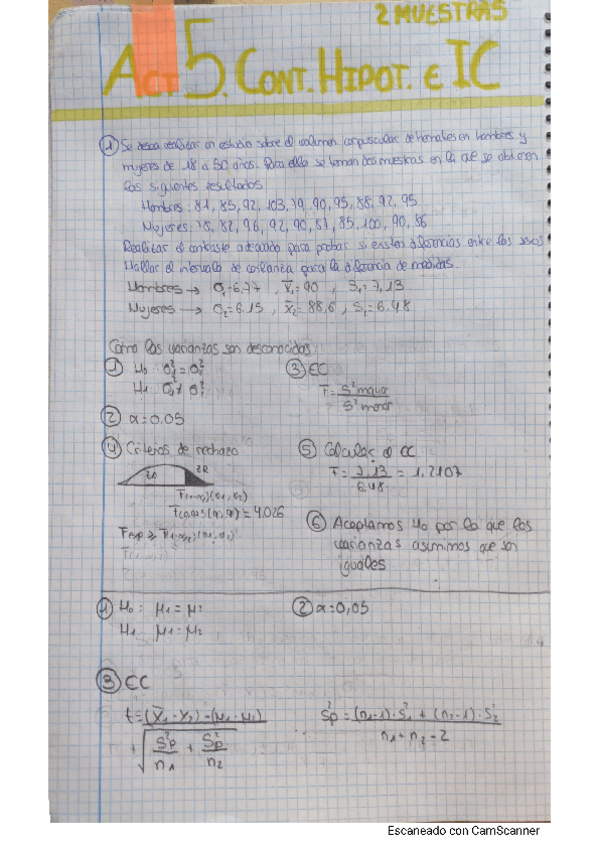 2 MUESTRAS
ACT 5. CONT. HIPOT. E IC
① Se desea realizar un estudio sobre el volumen corpuscular de hematíes en hombres y
mujeres de 18 a 50 años. Para ello se toman dos muestras en la que se obtienen
los siguientes resultados
Hombres: 81, 85, 92, 103, 79, 90, 95, 88, 92, 95
Mujeres: 78, 82, 96, 92, 90, 81, 85, 100, 90, 86
Realizar el contraste adecuado para probar si existen diferencias entre los sexos
Hallar el intervalo de confianza para la diferencia de medidas.
Hombres → σ₁=6.77 , x̄₁=90 , S₁=7,13
Mujeres → σ₂=6.15 , x̄₂=88,6 , S₁=6.48
Como las varianzas son desconocidas
① H₀: σ₁²=σ₂²
H₁ σ₁²≠σ₂²
② α=0.05
③ EC
F = S² mayor / S² menor
④ Criterios de rechazo
F(0,975)(9,9)=4,026
⑤ Calcular el EC
F = 7,13 / 6,48 = 1,2107
⑥ Aceptamos H₀ por lo que las
varianzas asumimos que son
iguales
① H₀: μ₁=μ₂
H₁ μ₁=μ₂
② α=0,05
③ EC
t = (x̄₁-x̄₂)-(μ₁-μ₂) / √(S²p/n₁ + S²p/n₂)
S²p = (n₁-1)·S₁² + (n₂-1)·S₂² / n₁+n₂-2
Escaneado con CamScanner